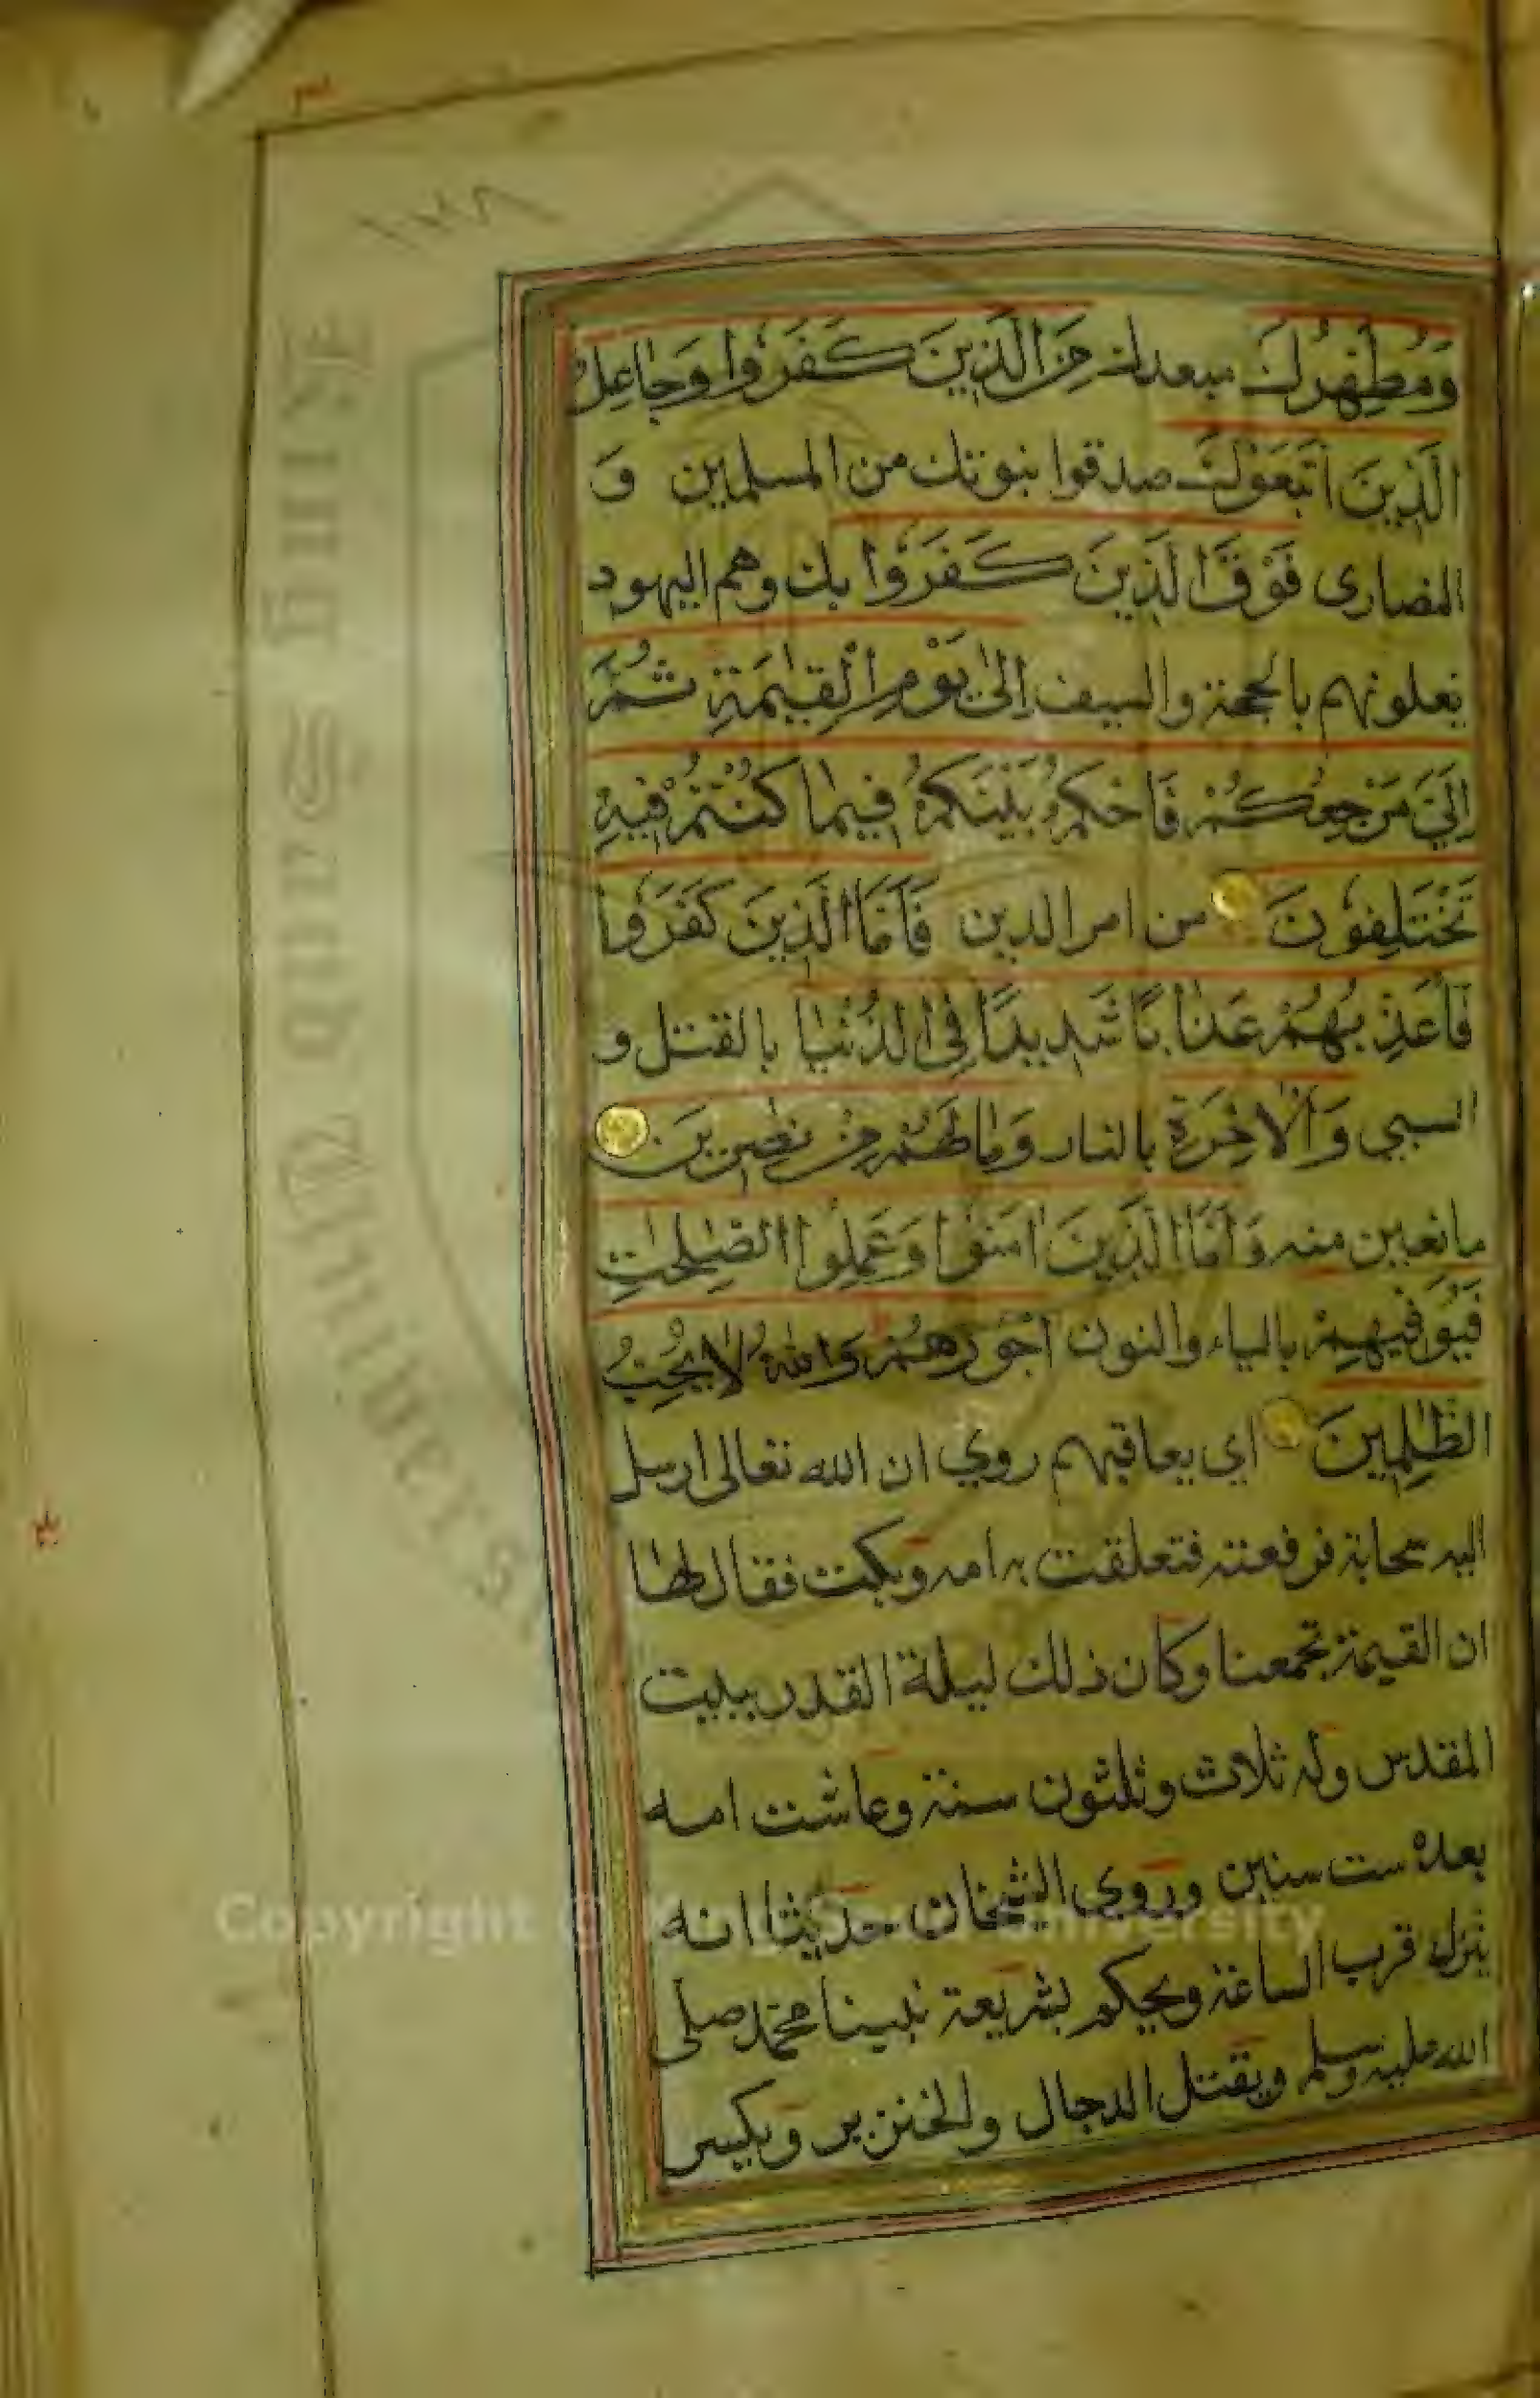 ١٢٨
وَمُطَهِّرُكَ مبعدك مِنَ الَّذِينَ كَفَرُوا وَجَاعِلُ
الَّذِينَ اتَّبَعُوْكَ صدقوا بنبوتك من المسلمين وَ
النصارى فَوْقَ الَّذِينَ كَفَرُوا بك وهم اليهود
يعلونهم بالحجة والسيف اِلٰى يَوْمِ الْقِيٰمَةِ ثُمَّ
اِلَيَّ مَرْجِعُكُمْ فَاَحْكُمُ بَيْنَكُمْ فِيمَا كُنْتُمْ فِيهِ
تَخْتَلِفُونَ من امر الدين فَاَمَّا الَّذِينَ كَفَرُوا
فَاُعَذِّبُهُمْ عَذَابًا شَدِيدًا فِي الدُّنْيَا بالقتل و
السبي وَالْاٰخِرَةِ بالنار وَمَا لَهُمْ مِنْ نٰصِرِينَ
مانعين منه وَاَمَّا الَّذِينَ اٰمَنُوْا وَعَمِلُوا الصّٰلِحٰتِ
فَيُوَفِّيهِمْ بالياء والنون اُجُورَهُمْ وَاللّٰهُ لَا يُحِبُّ
الظّٰلِمِينَ اي يعاقبهم روي ان الله تعالى ارسل
اليه سحابة فرفعته فتعلقت به امه وبكت فقال لها
ان القيمة تجمعنا وكان ذلك ليلة القدر ببيت
المقدس وله ثلاث وثلثون سنة وعاشت امه
بعده ست سنين وروى الشيخان حديثا انه
ينزل قرب الساعة ويحكم بشريعة نبينا محمد صلى
الله عليه وسلم ويقتل الدجال والخنزير ويكسر
Copyright © King Saud University